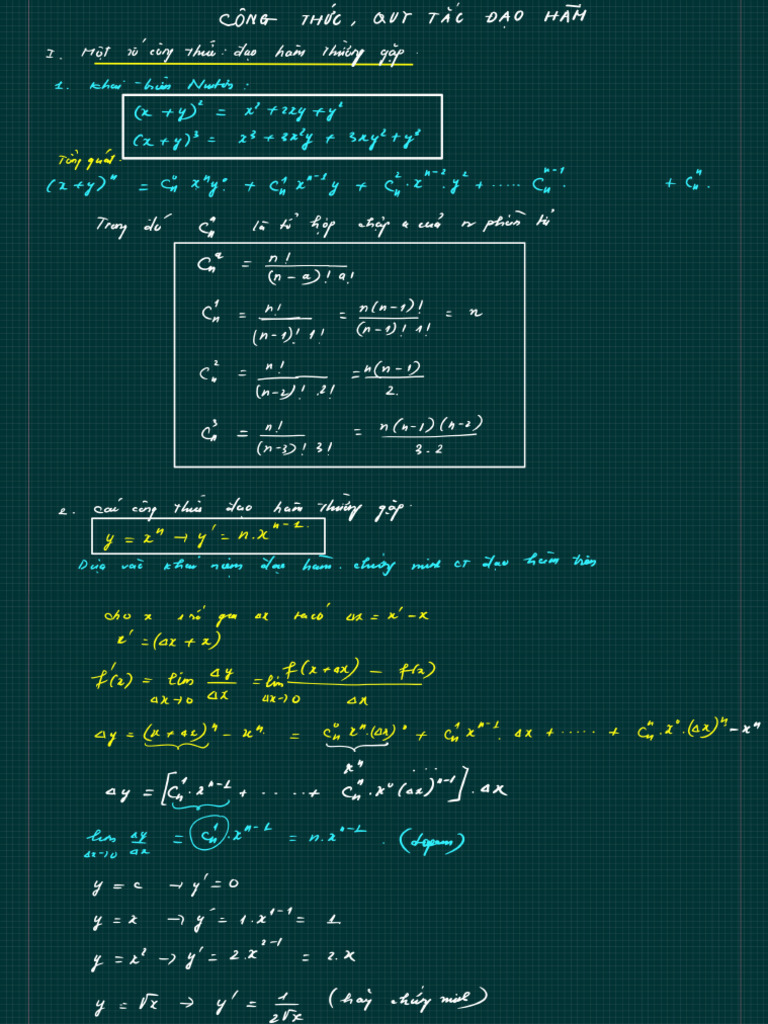 CÔNG THỨC, QUY TẮC ĐẠO HÀM
I. Một số công thức đạo hàm thường gặp.
1. Khai triển Newton:
(x + y)² = x² + 2xy + y²
(x + y)³ = x³ + 3x²y + 3xy² + y³
Tổng quát:
(x + y)ⁿ = Cₙ⁰ xⁿy⁰ + Cₙ¹ xⁿ⁻¹y + Cₙ².xⁿ⁻².y² + ..... Cₙⁿ⁻¹. + Cₙⁿ.
Trong đó Cₙᵃ là tổ hợp chập a của n phần tử
Cₙᵃ = n! / (n - a)! a!
Cₙ¹ = n! / (n-1)! 1! = n(n-1)! / (n-1)! 1! = n
Cₙ² = n! / (n-2)! .2! = n(n-1) / 2.
Cₙ³ = n! / (n-3)! 3! = n(n-1)(n-2) / 3.2
2. Các công thức đạo hàm thường gặp.
y = xⁿ → y' = n.xⁿ⁻¹.
Dựa vào khái niệm đạo hàm. chứng minh CT đạo hàm trên
cho x 1 số gia Δx ta có Δx = x' - x
x' = (Δx + x)
f'(x) = lim Δx→0 Δy/Δx = lim Δx→0 f(x + Δx) - f(x) / Δx
Δy = (x + Δx)ⁿ - xⁿ. = Cₙ⁰ xⁿ.(Δx)⁰ + Cₙ¹ xⁿ⁻¹. Δx + ..... + Cₙⁿ.x⁰.(Δx)ⁿ - xⁿ
xⁿ ...
Δy = [Cₙ¹.xⁿ⁻¹ + ..... + Cₙⁿ.x⁰(Δx)ⁿ⁻¹].Δx
lim Δx→0 Δy/Δx = Cₙ¹.xⁿ⁻¹ = n.xⁿ⁻¹. (đpcm)
y = c → y' = 0
y = x → y' = 1.x¹⁻¹ = 1
y = x² → y' = 2.x²⁻¹ = 2.x
y = √x → y' = 1 / 2√x (hãy chứng minh)